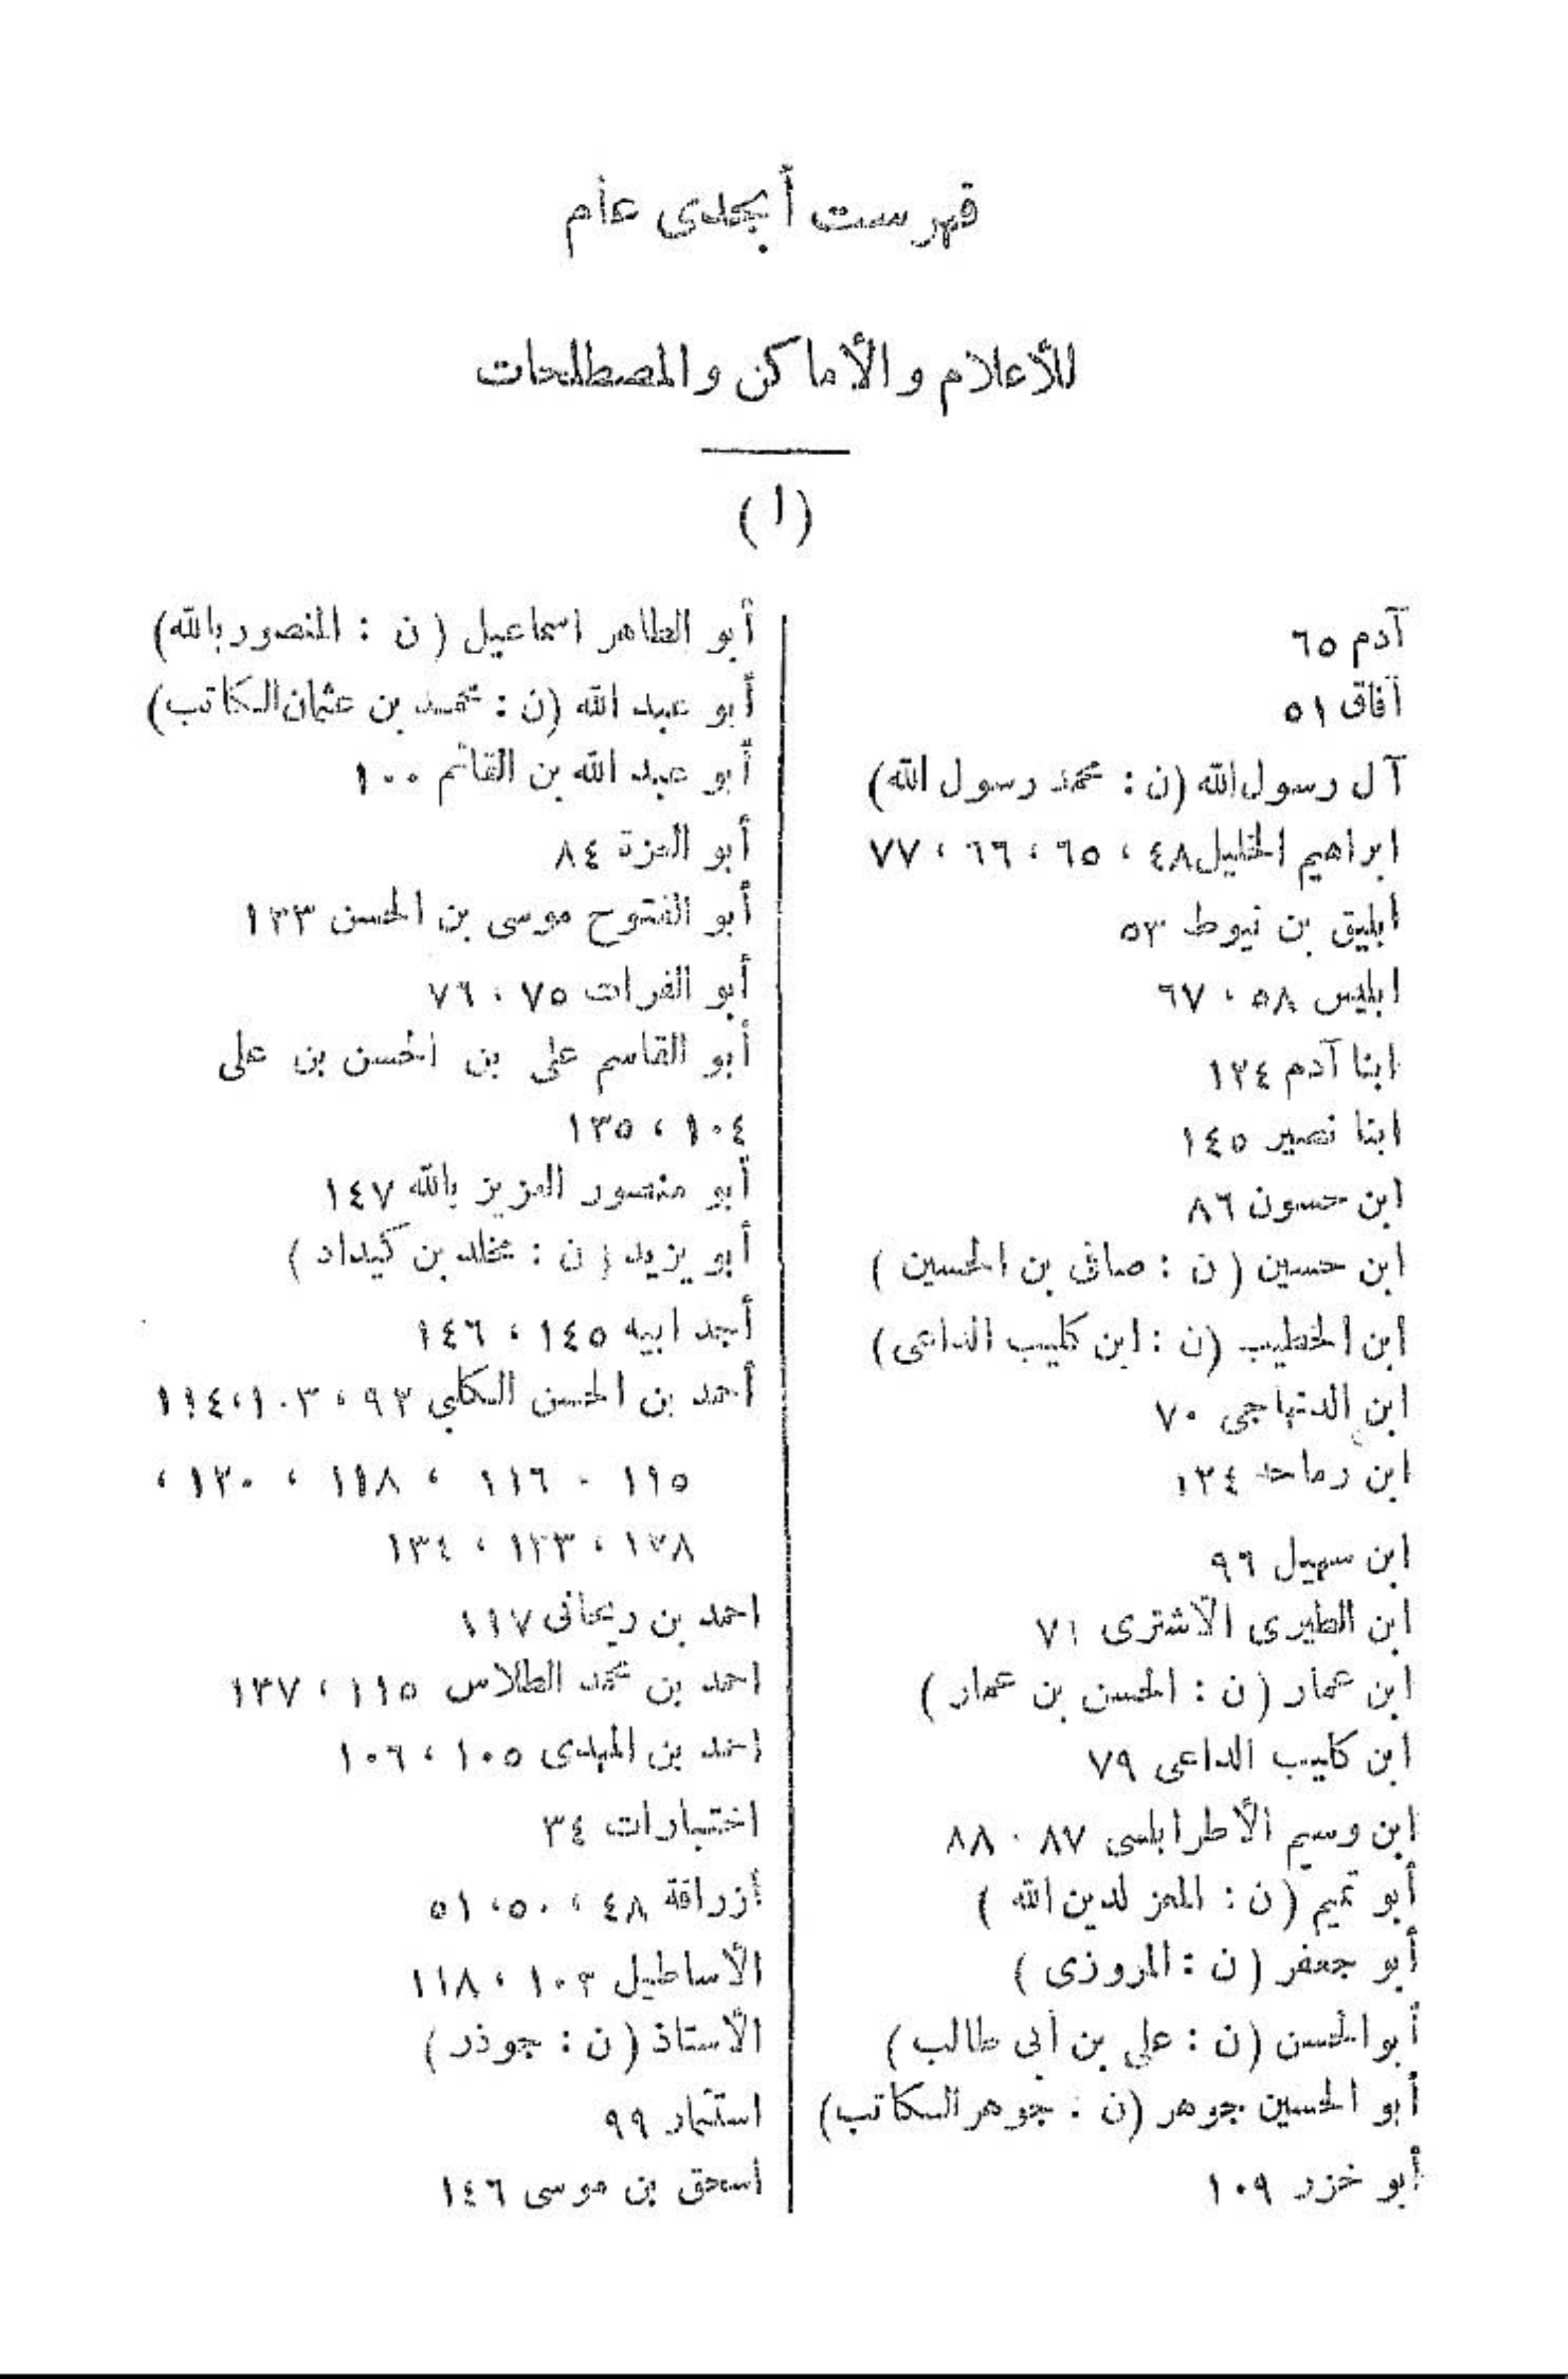 فهرست أبجدى عام
للأعلام والأماكن والمصطلحات
(ا)
آدم ٦٥
آفاق ٥١
آل رسول الله (ن : محمد رسول الله)
ابراهيم الخليل ٤٨ ، ٦٥ ، ٦٦ ، ٧٧
ابليق بن نيوط ٥٣
ابليس ٥٨ ، ٦٧
ابنا آدم ١٢٤
ابنا نصير ١٤٥
ابن حسون ٨٦
ابن حسين (ن : صافى بن الحسين)
ابن الخطيب (ن : ابن كليب الداعى)
ابن الدنهاجى ٧٠
ابن رماحد
ابن سهيل ٩٦
ابن الطيرى الأشترى ٧١
ابن عمار (ن : الحسن بن عمار)
ابن كليب الداعى ٧٩
ابن وسيم الأطرابلسى ٨٧ ، ٨٨
أبو تميم (ن : المعز لدين الله)
أبو جعفر (ن : المروزى)
أبو الحسن (ن : على بن أبى طالب)
أبو الحسين جوهر (ن : جوهر الكاتب)
أبو خزر ١٠٩
أبو الطاهر اسماعيل (ن : المنصور بالله)
أبو عبد الله (ن : محمد بن عثمان الكاتب)
أبو عبد الله بن القائم ١٠٠
أبو العزة ٨٤
أبو الفتوح موسى بن الحسن ١٣٣
أبو الفرات ٧٥ ، ٧٦
أبو القاسم على بن الحسن بن على
١٠٤ ، ١٣٥
أبو منصور العزيز بالله ١٤٧
أبو يزيد (ن : مخلد بن كيداد)
أجدابيه ١٤٥ ، ١٤٦
أحمد بن الحسن الكلبي ٩٢ ، ١٠٣ ، ١١٤
١١٥ - ١١٦ ، ١١٨ ، ١٢٠ ،
١٣٣ ، ١٣٤
احمد بن ريحانى ١١٧
احمد بن محمد الطلاس ١١٥ ، ١٣٧
احمد بن المهدى ١٠٥ ، ١٠٦
اختبارات ٣٤
أزراقة ٤٨ ، ٥٠ ، ٥١
الأساطيل ١٠٣ ، ١١٨
الأستاذ (ن : جوذر)
استثمار ٩٩
اسحق بن موسى ١٤٦